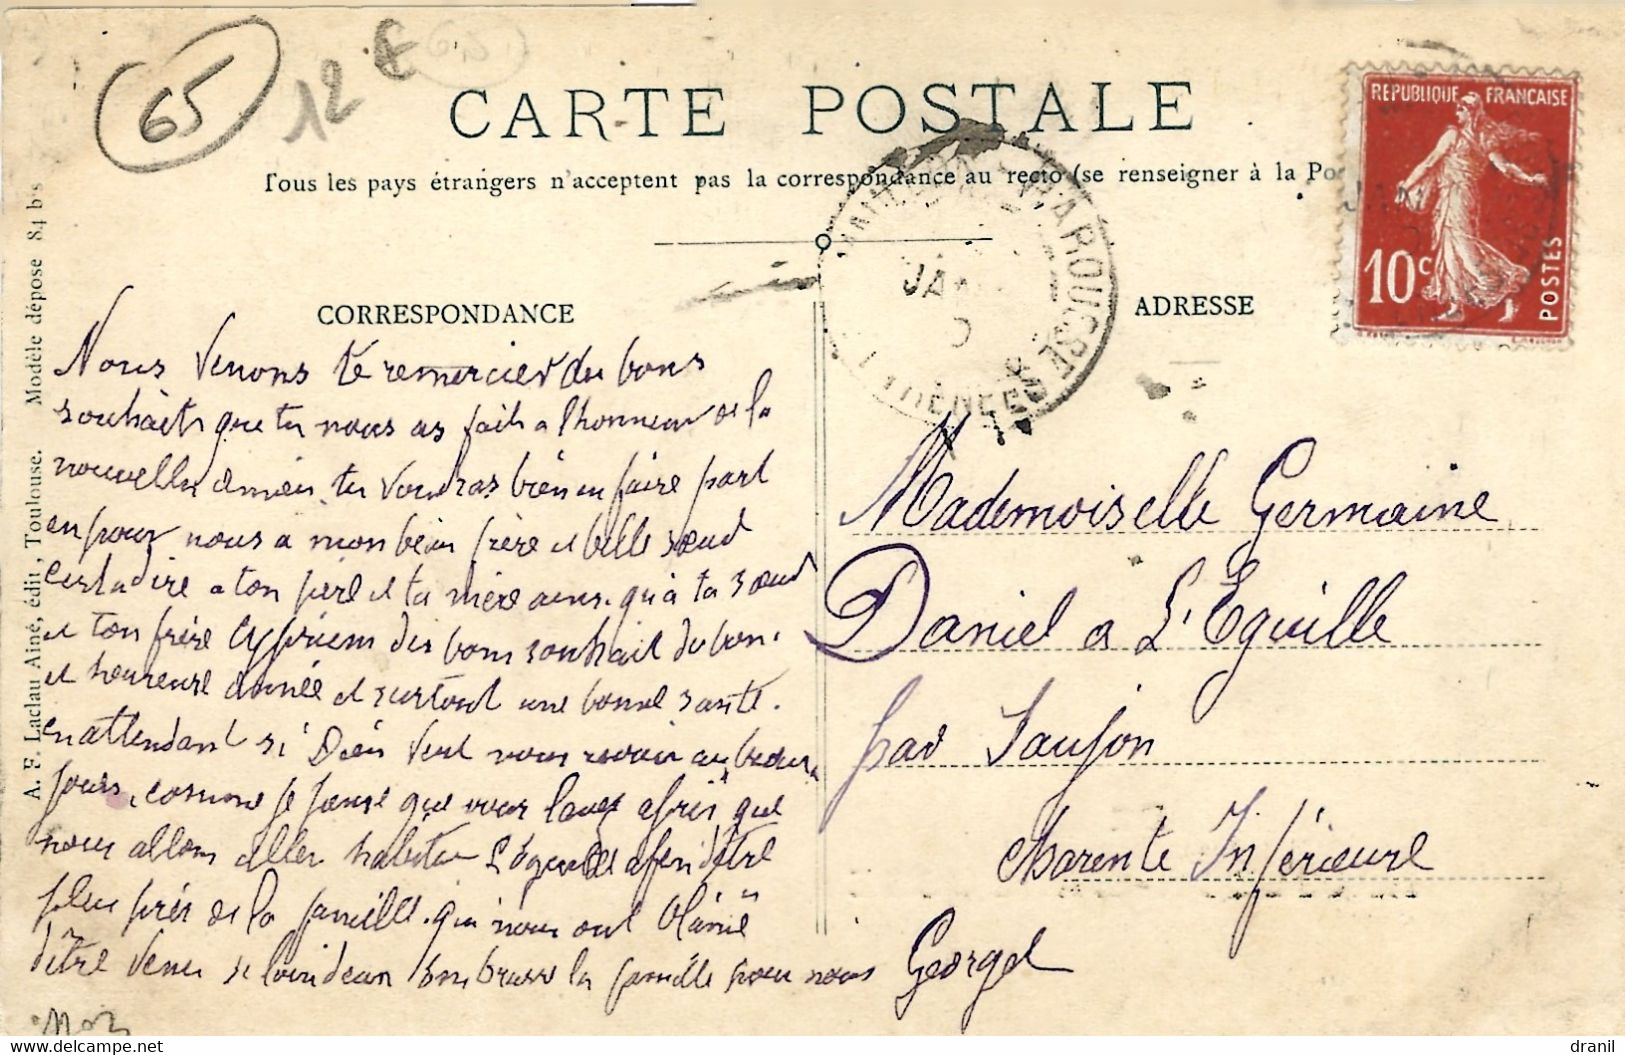 65
12 €
CARTE POSTALE
Tous les pays étrangers n'acceptent pas la correspondance au recto (se renseigner à la Po
REPUBLIQUE FRANCAISE
10 c
POSTES
LABAROUSSE
JAN
PYRÉNÉES
CORRESPONDANCE
ADRESSE
A. F. Laclau Aîné, édit, Toulouse. Modèle déposé 84 bis
Nous venons te remercier du bons
souhaits que tu nous as fait a lhonneur de la
nouvelle tu voudras bien en faire part
en pour nous a mon beau frère et belle sœur
cestadire a ton père et ta mère ainsi qu'à ta sœur
et ton frère Cyprien des bons souhait du bon
et heureuse année et surtout une bonne santé.
en attendant si Dieu veut nous revoir au beau
jours, comme je pense que vous savez apris que
nous allons aller habiter L'éguille afin dêtre
plus près de la famille qui nous ont blamé
dêtre venu si loin embrasse la famille pour nous Georget
Mademoiselle Germaine
Daniel a L'Eguille
par Saujon
Charente Inférieure
delcampe.net
dranil